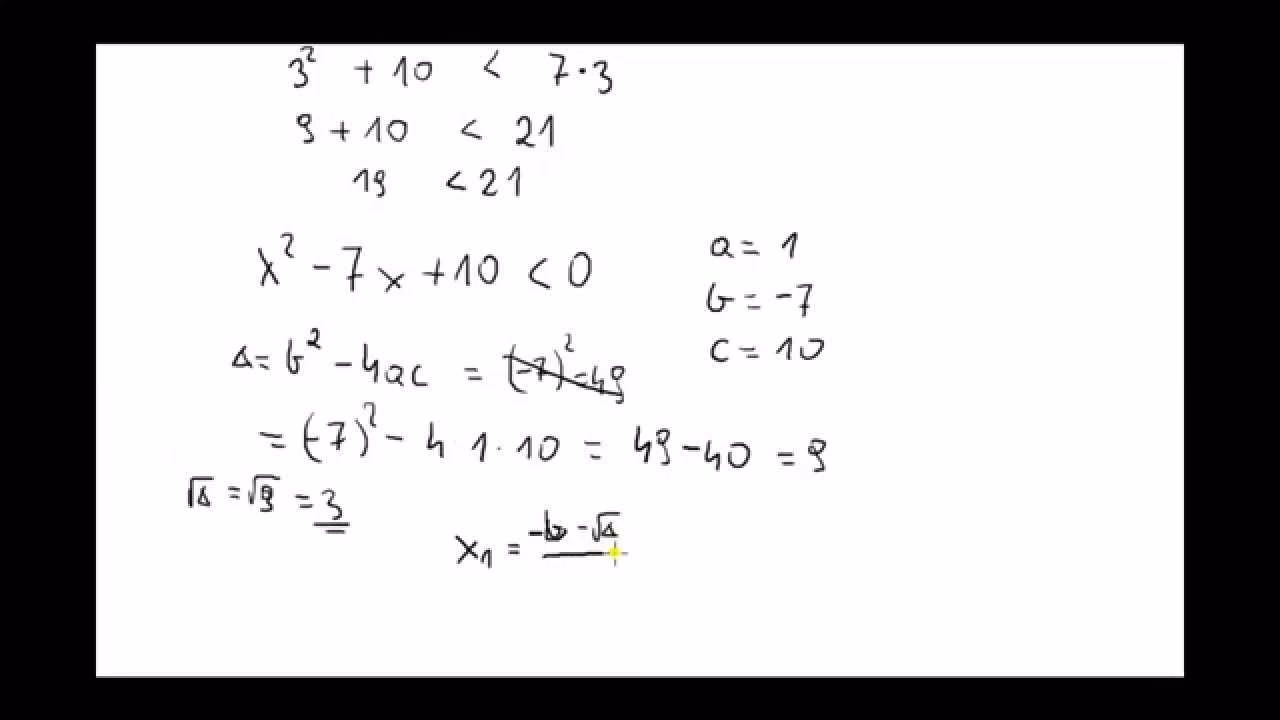 3² + 10 < 7·3
9 + 10 < 21
19 < 21
x² - 7x + 10 < 0
a = 1
b = -7
c = 10
Δ = b² - 4ac = (-7)² - 49
= (-7)² - 4 1·10 = 49 - 40 = 9
√Δ = √9 = 3
x₁ = -b - √Δ